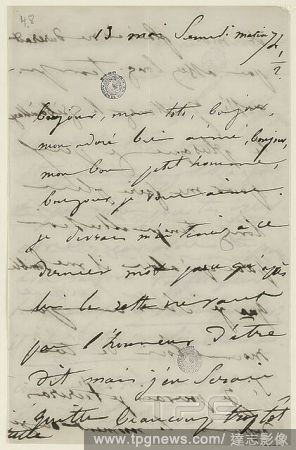 48
13 mai Samedi matin 7h ½
Bonjour, mon toto, bonjour,
mon adoré bien aimé, bonjour,
mon bon petit homme,
bonjour, je vous aime.
je devrais m'en tenir à ce
dernier mot parce qu'après
lui le reste ne vaut
pas l'honneur d'être
dit mais j'en serais
quitte beaucoup trop tôt
TPG
www.tpgnews.com/達志影像